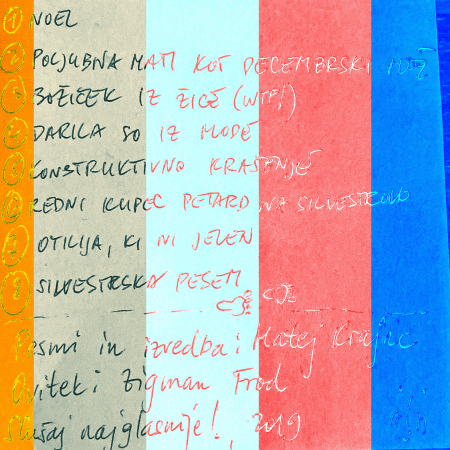 1 NOEL
2 POLJUBNA MATI KOT DECEMBRSKI MOŽ
3 BOŽIČEK IZ ŽICE (WTF!)
4 DARILA SO IZ MODE
5 KONSTRUKTIVNO KRAŠENJE
6 REDNI KUPEC PETARD ZA SILVESTROVO
7 OTILIJA, KI NI JELEN
8 SILVESTRSKA PESEM
Pesmi in izvedba: Matej Krajnc
Ovitek: Žigman Frod
Slušaj najglasnije!, 2019